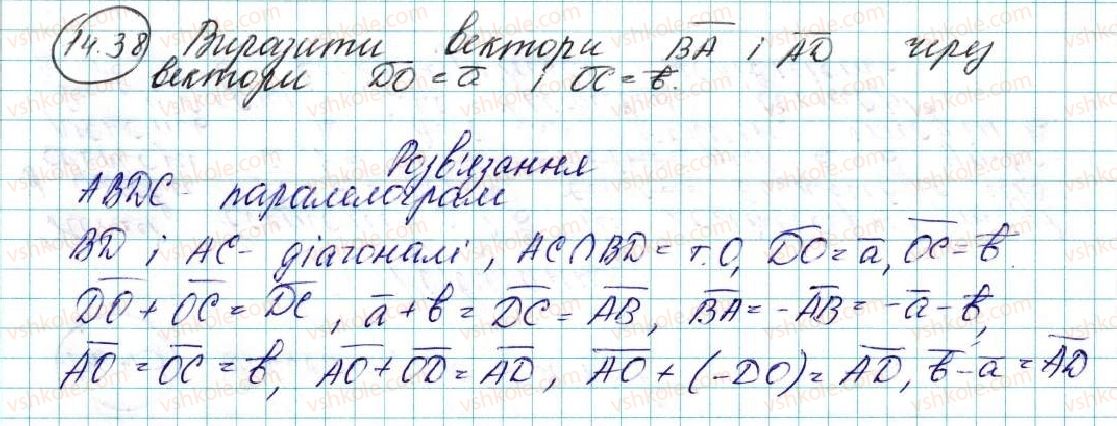 14.38 Виразити вектори B̅A̅ і A̅D̅ через
вектори D̅O̅ = a̅ і O̅C̅ = b̅.
Розв'язання
ABDC - паралелограм
BD і AC - діагоналі, AC∩BD = т.O, D̅O̅ = a̅, O̅C̅ = b̅.
D̅O̅ + O̅C̅ = D̅C̅, a̅ + b̅ = D̅C̅ = A̅B̅, B̅A̅ = -A̅B̅ = -a̅ - b̅,
A̅O̅ = O̅C̅ = b̅, A̅O̅ + O̅D̅ = A̅D̅, A̅O̅ + (-DO) = A̅D̅, b̅ - a̅ = A̅D̅